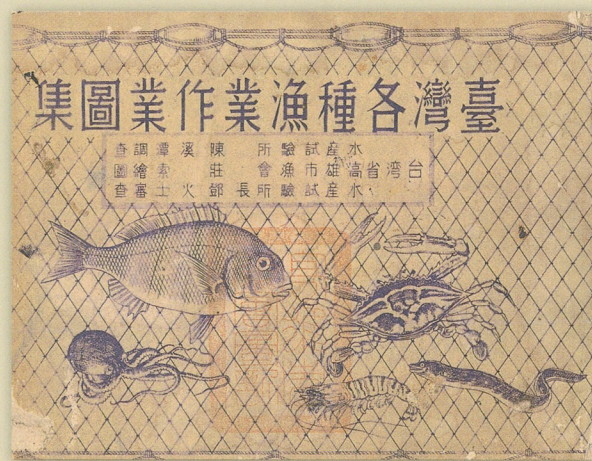 臺灣各種漁業作業圖集
水産試驗所 陳溪潭調查
台湾省高雄市漁會 莊索繪圖
水産試驗所長 鄧火土審查